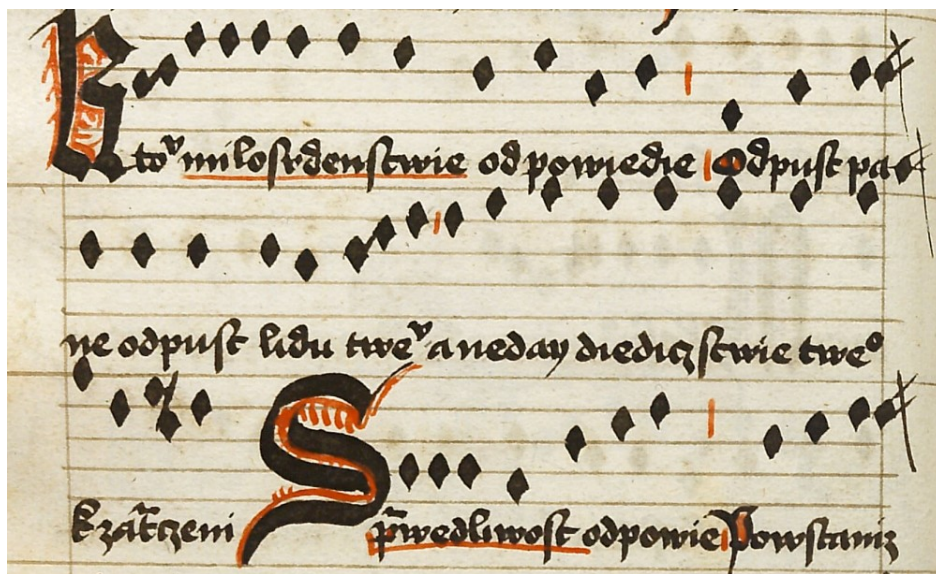 Kto͛ miloſrdenſtwie odpowiedie Odpuſt pa
ne odpuſt lidu twe͛ a neday diediczſtwie tweͦ
k zatczeni Sp̄wedliwoſt odpowie Powſtaniz